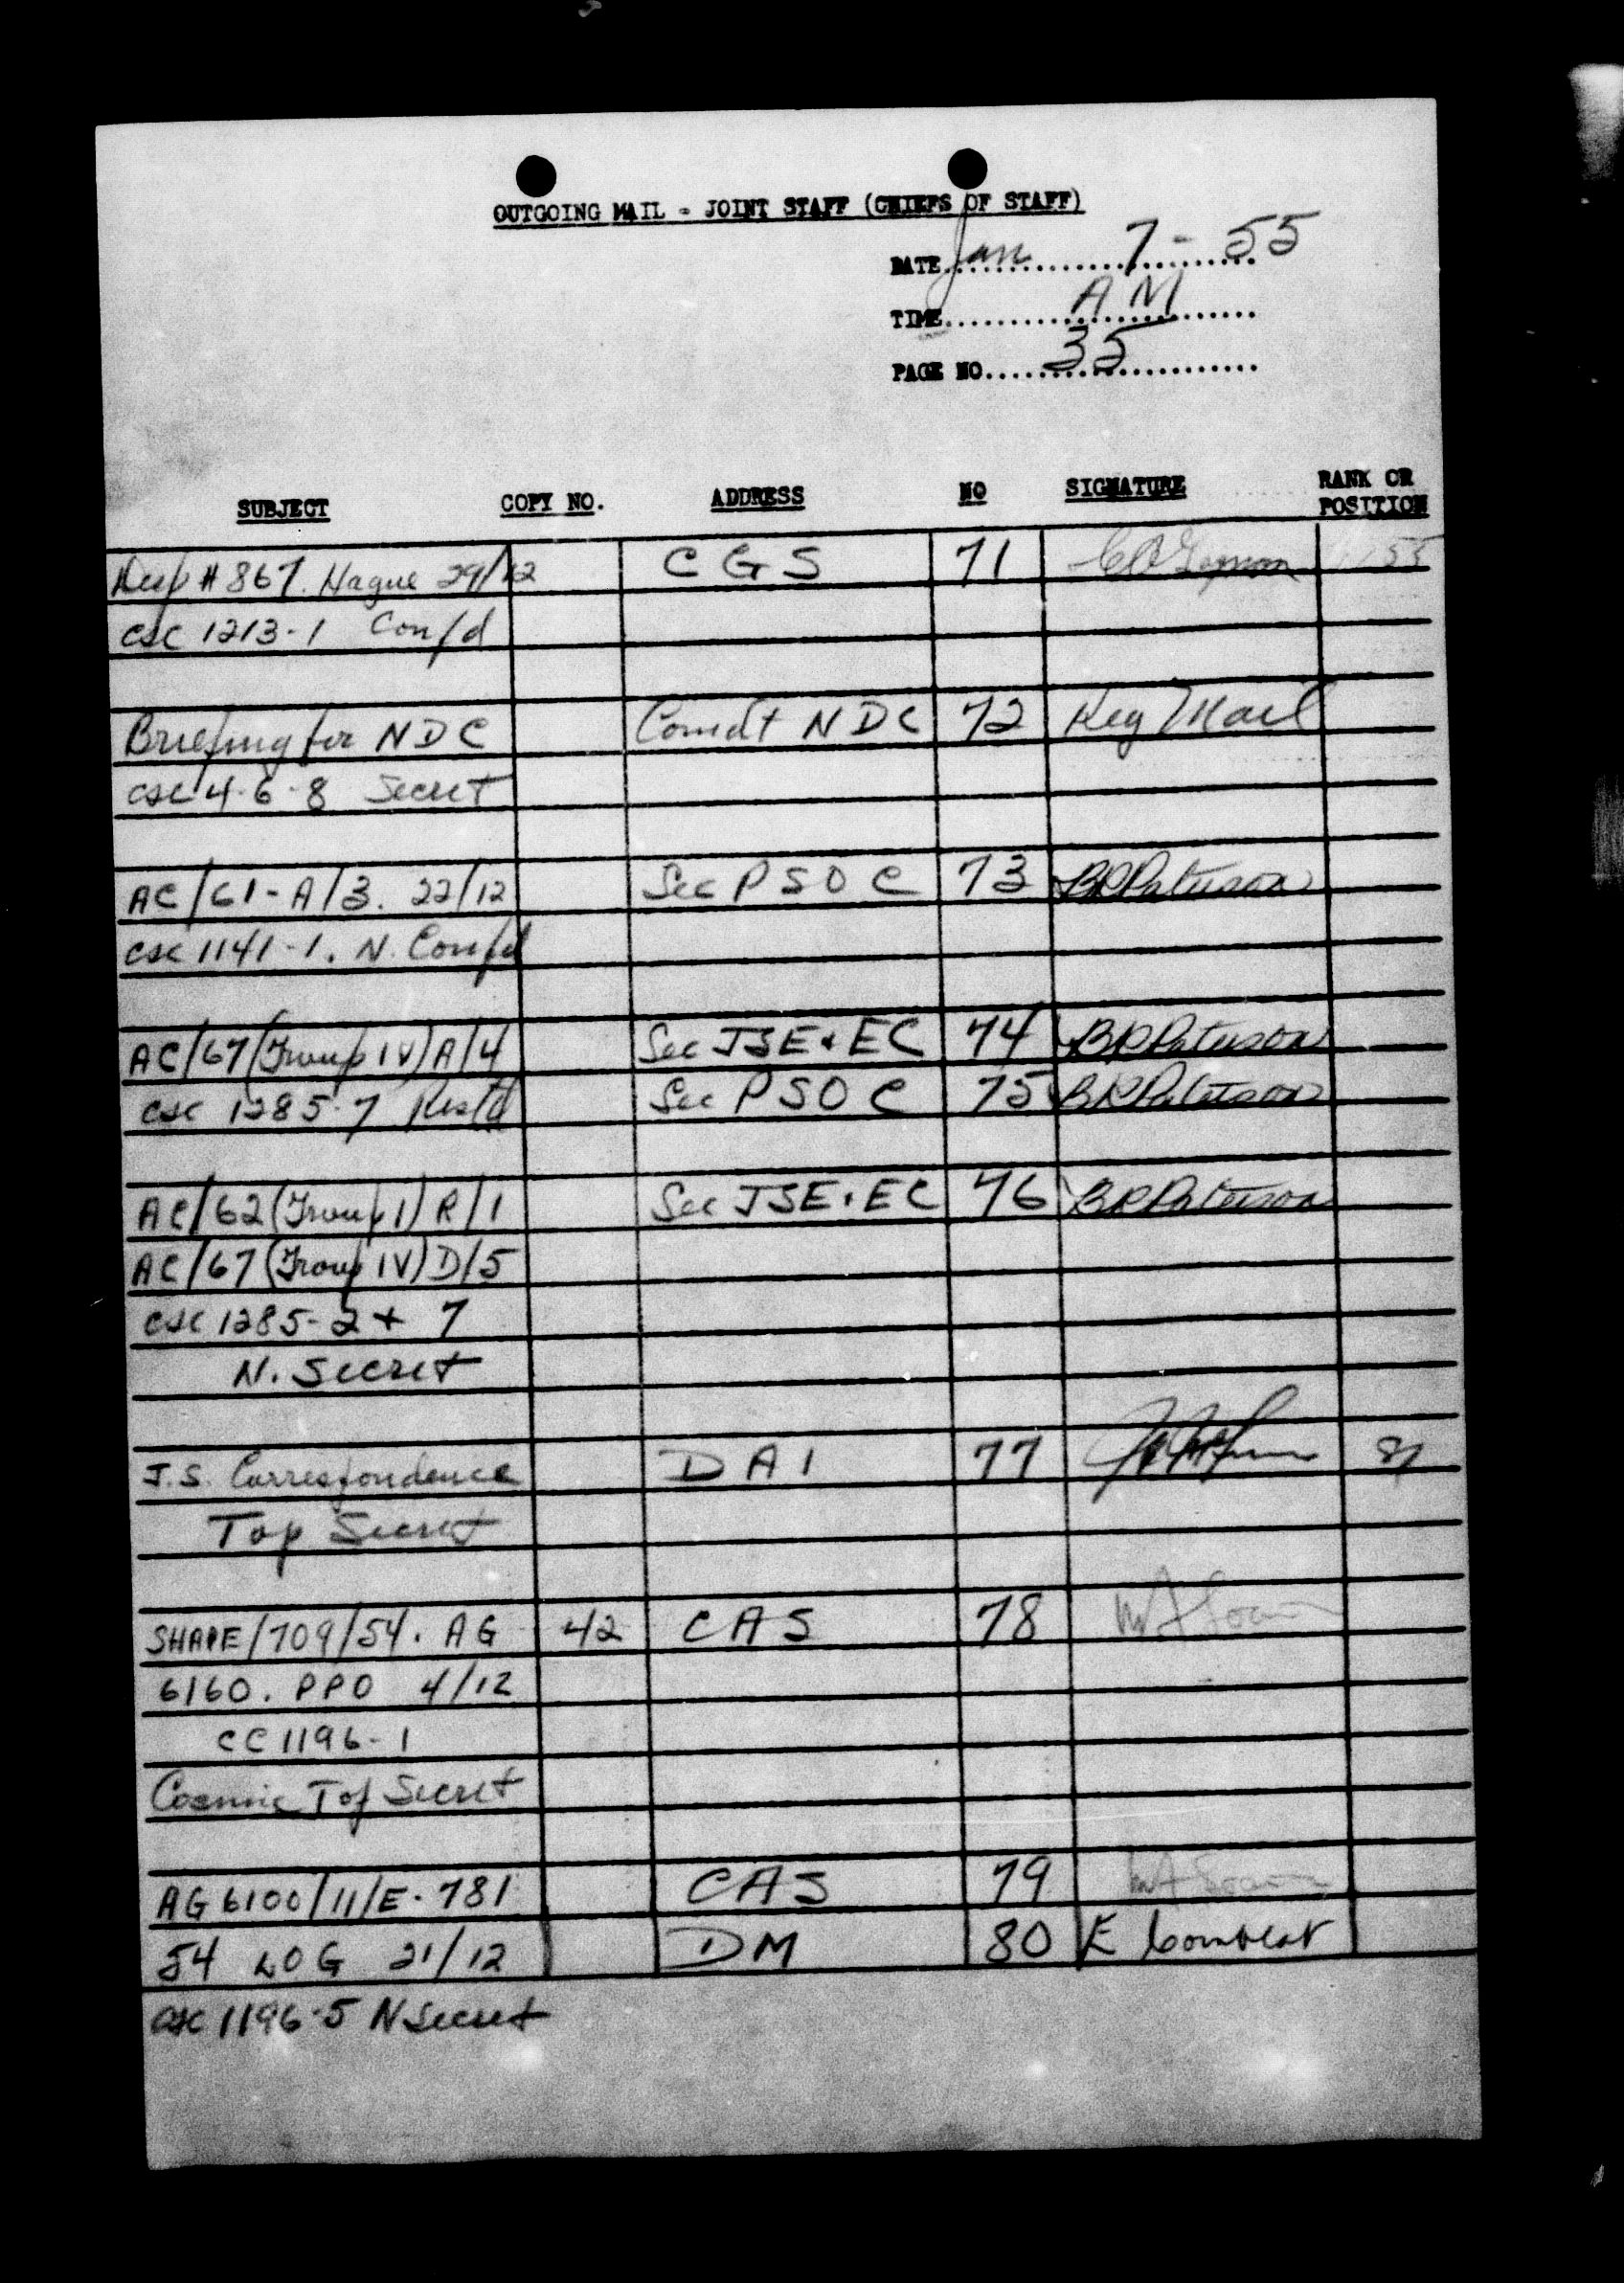 OUTGOING MAIL - JOINT STAFF (CHIEFS OF STAFF)
DATE Jan 7 - 55
TIME AM
PAGE NO. 35
SUBJECT COPY NO. ADDRESS NO SIGNATURE RANK OR POSITION
Desp # 867. Hague 29/12 CGS 71
CSC 1213-1 Conf'd
Briefing for NDC Comdt NDC 72 Reg Mail
CSC 4-6-8 Secret
AC/61-A/3. 22/12 Sec PSOC 73 BR Paterson
CSC 1141-1. N. Conf'd
AC/67 (Group IV) A/4 Sec JSE & EC 74 BR Paterson
CSC 1285-7 Rest'd Sec PSOC 75 BR Paterson
AC/62 (Group I) R/1 Sec JSE & EC 76 BR Paterson
AC/67 (Group IV) D/5
CSC 1285-2 + 7
N. Secret
J.S. Correspondence DAI 77
Top Secret
SHAPE/709/54. AG 42 CAS 78
6160. PPO 4/12
CC 1196-1
Cosmic Top Secret
AG 6100/11/E-781 CAS 79
54 LOG 21/12 DM 80 E
CSC 1196-5 N Secret